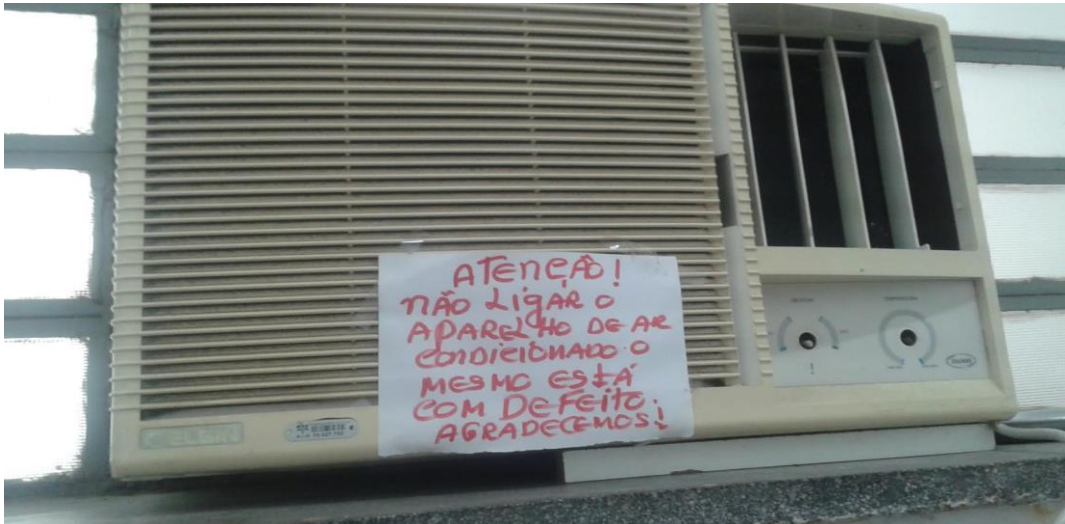 ATENÇÃO!
NÃO LIGAR O
APARELHO DE AR
CONDICIONADO O
MESMO ESTÁ
COM DEFEITO.
AGRADECEMOS!